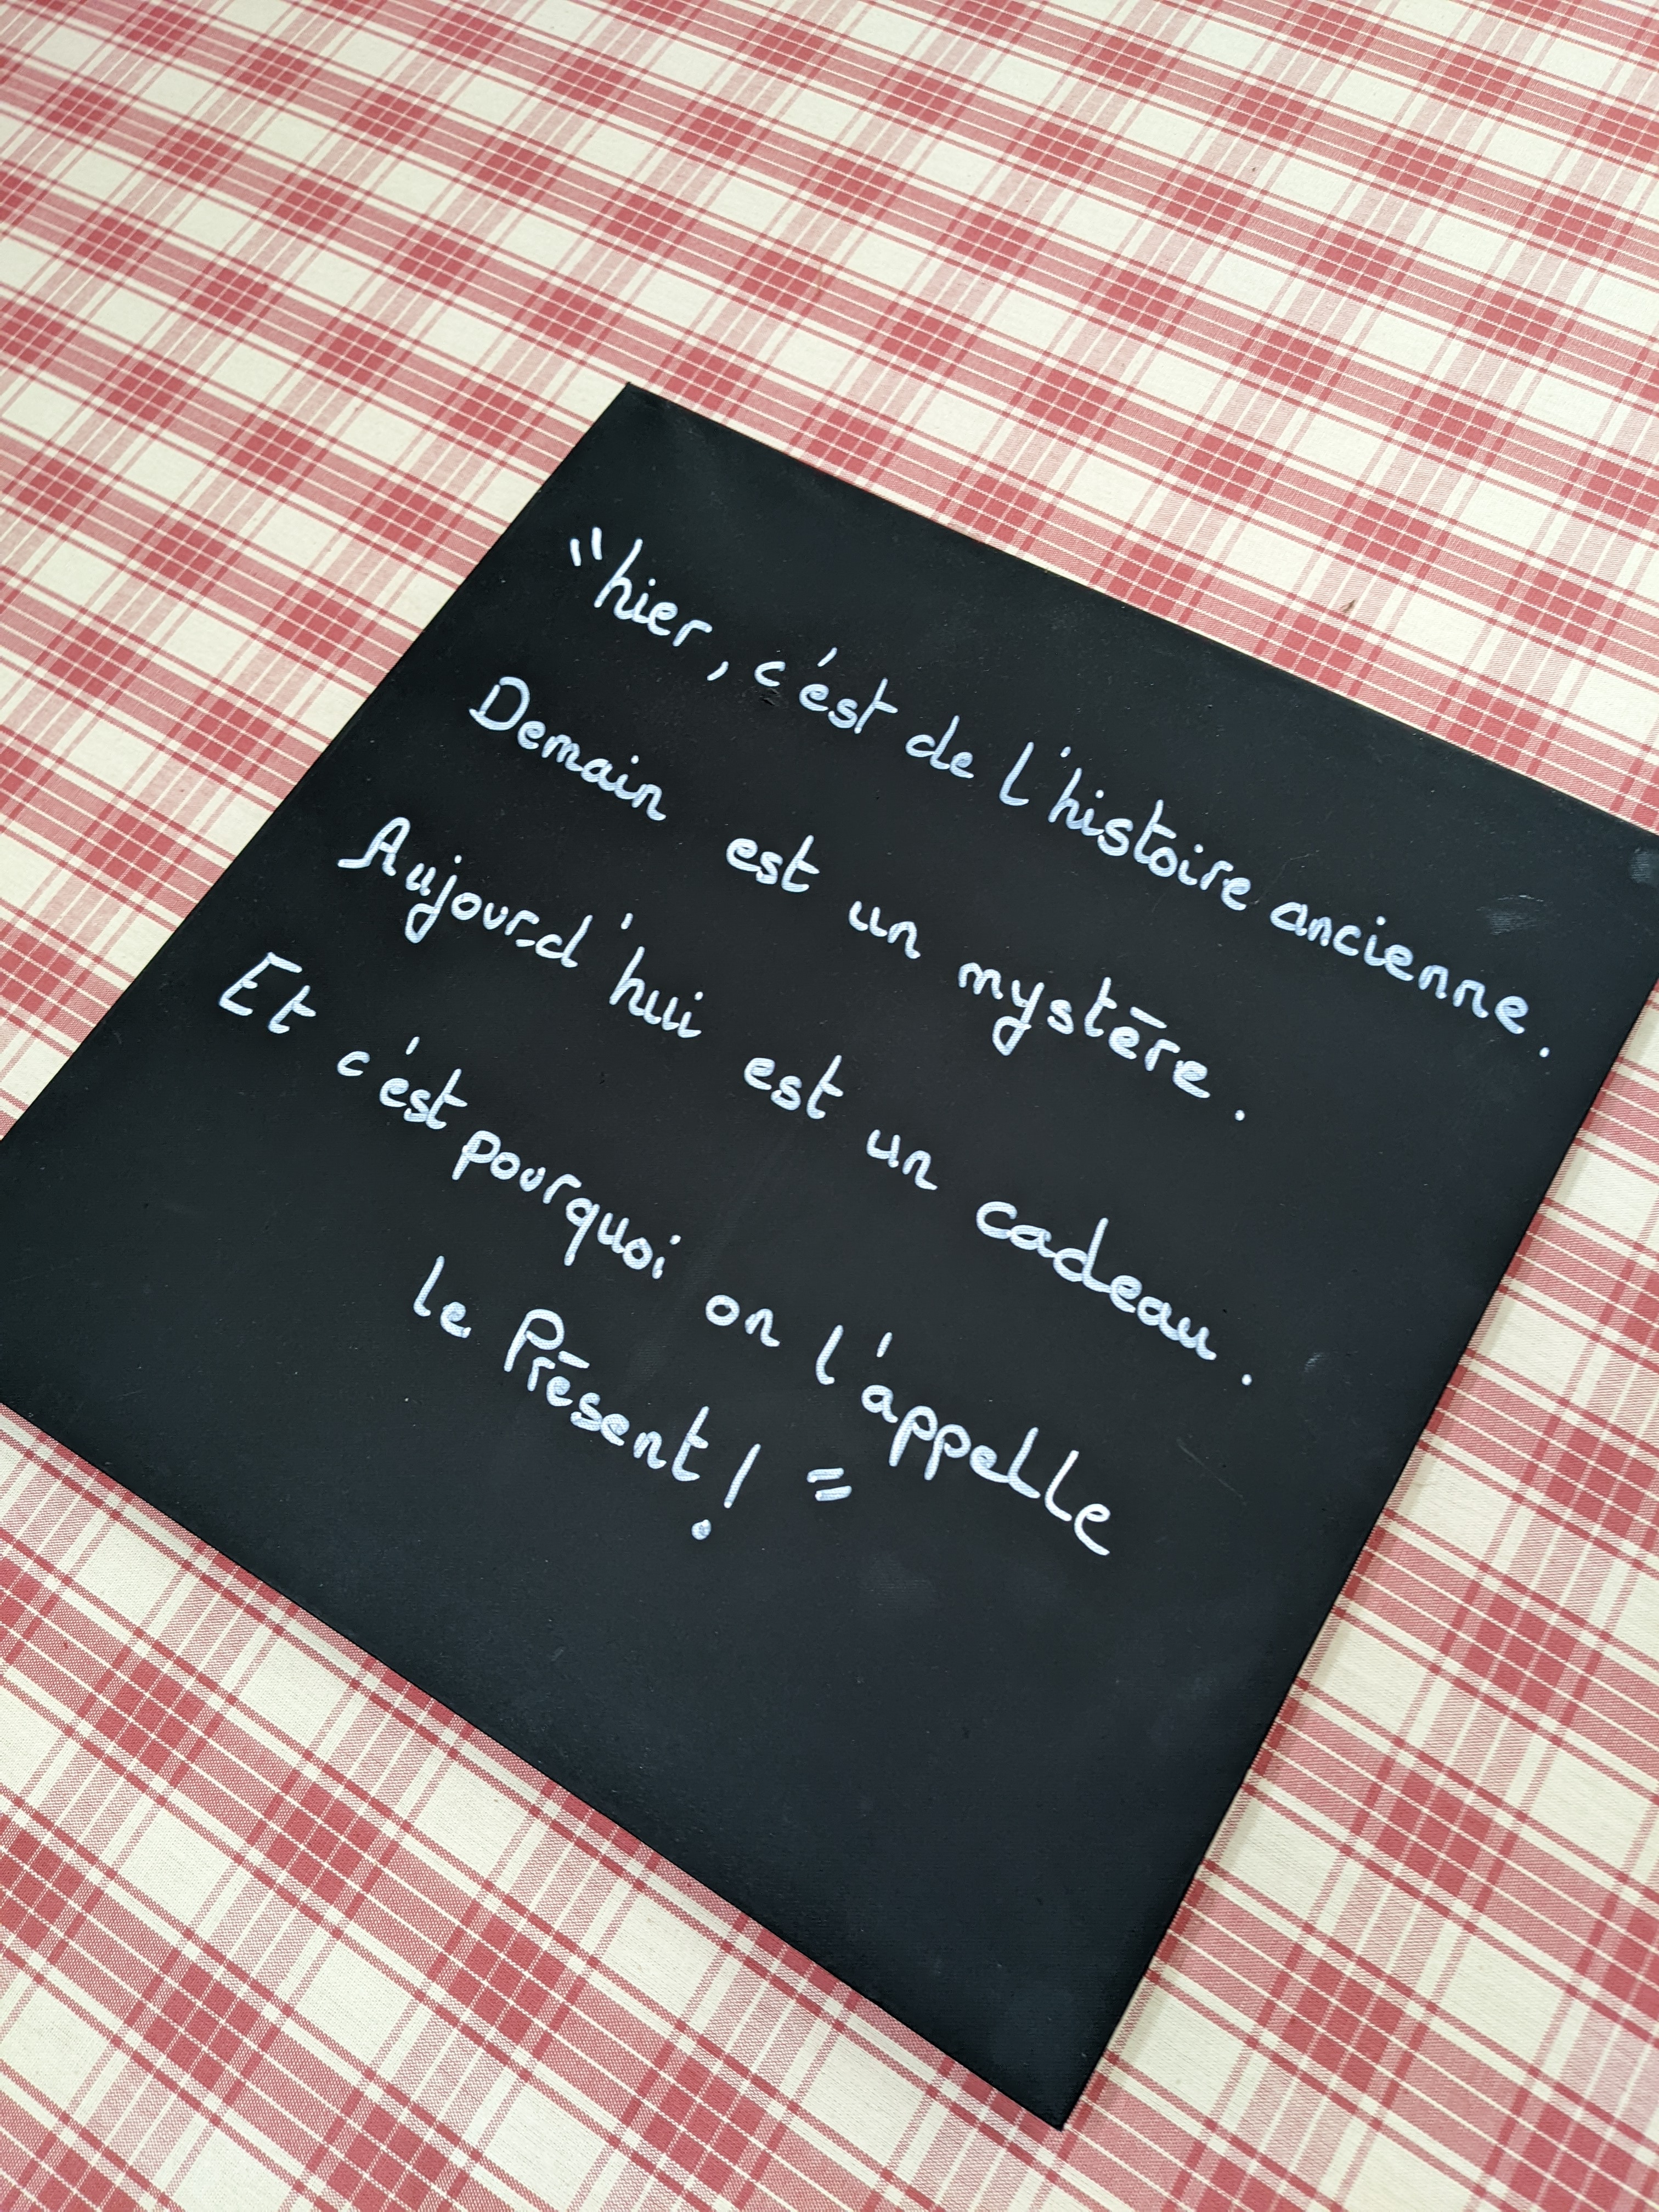 "hier, c'est de l'histoire ancienne.
Demain est un mystère.
Aujourd'hui est un cadeau.
Et c'est pourquoi on l'appelle
le Présent! "